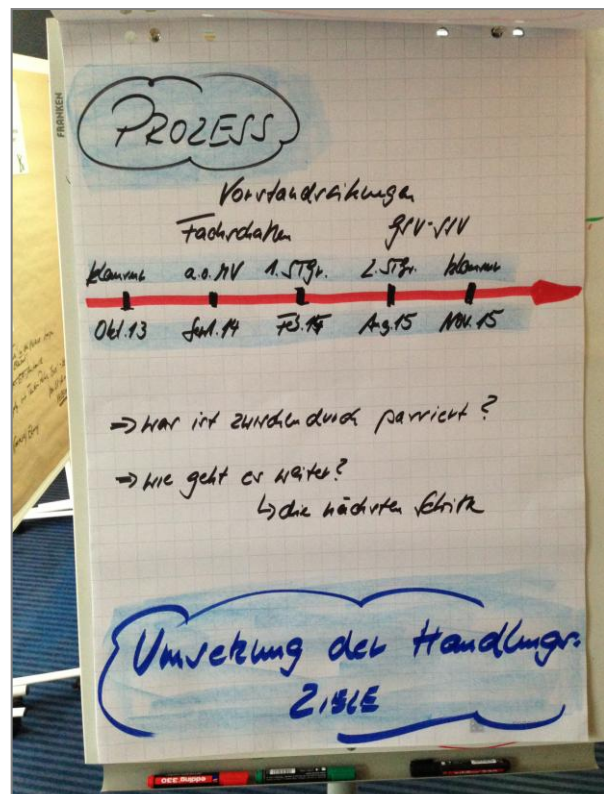 PROZESS
Vorstandssitzungen
Fachschaften GSV-SSV
Klausur a.o. MV 1. STGr. 2. STGr. Klausur
Okt. 13 Sept. 14 Feb. 15 Aug. 15 Nov. 15
⇒ was ist zwischendurch passiert?
⇒ wie geht es weiter?
↳ die nächsten Schritte
Umsetzung der Handlungs-
ZIELE
FRANKEN
edding 330